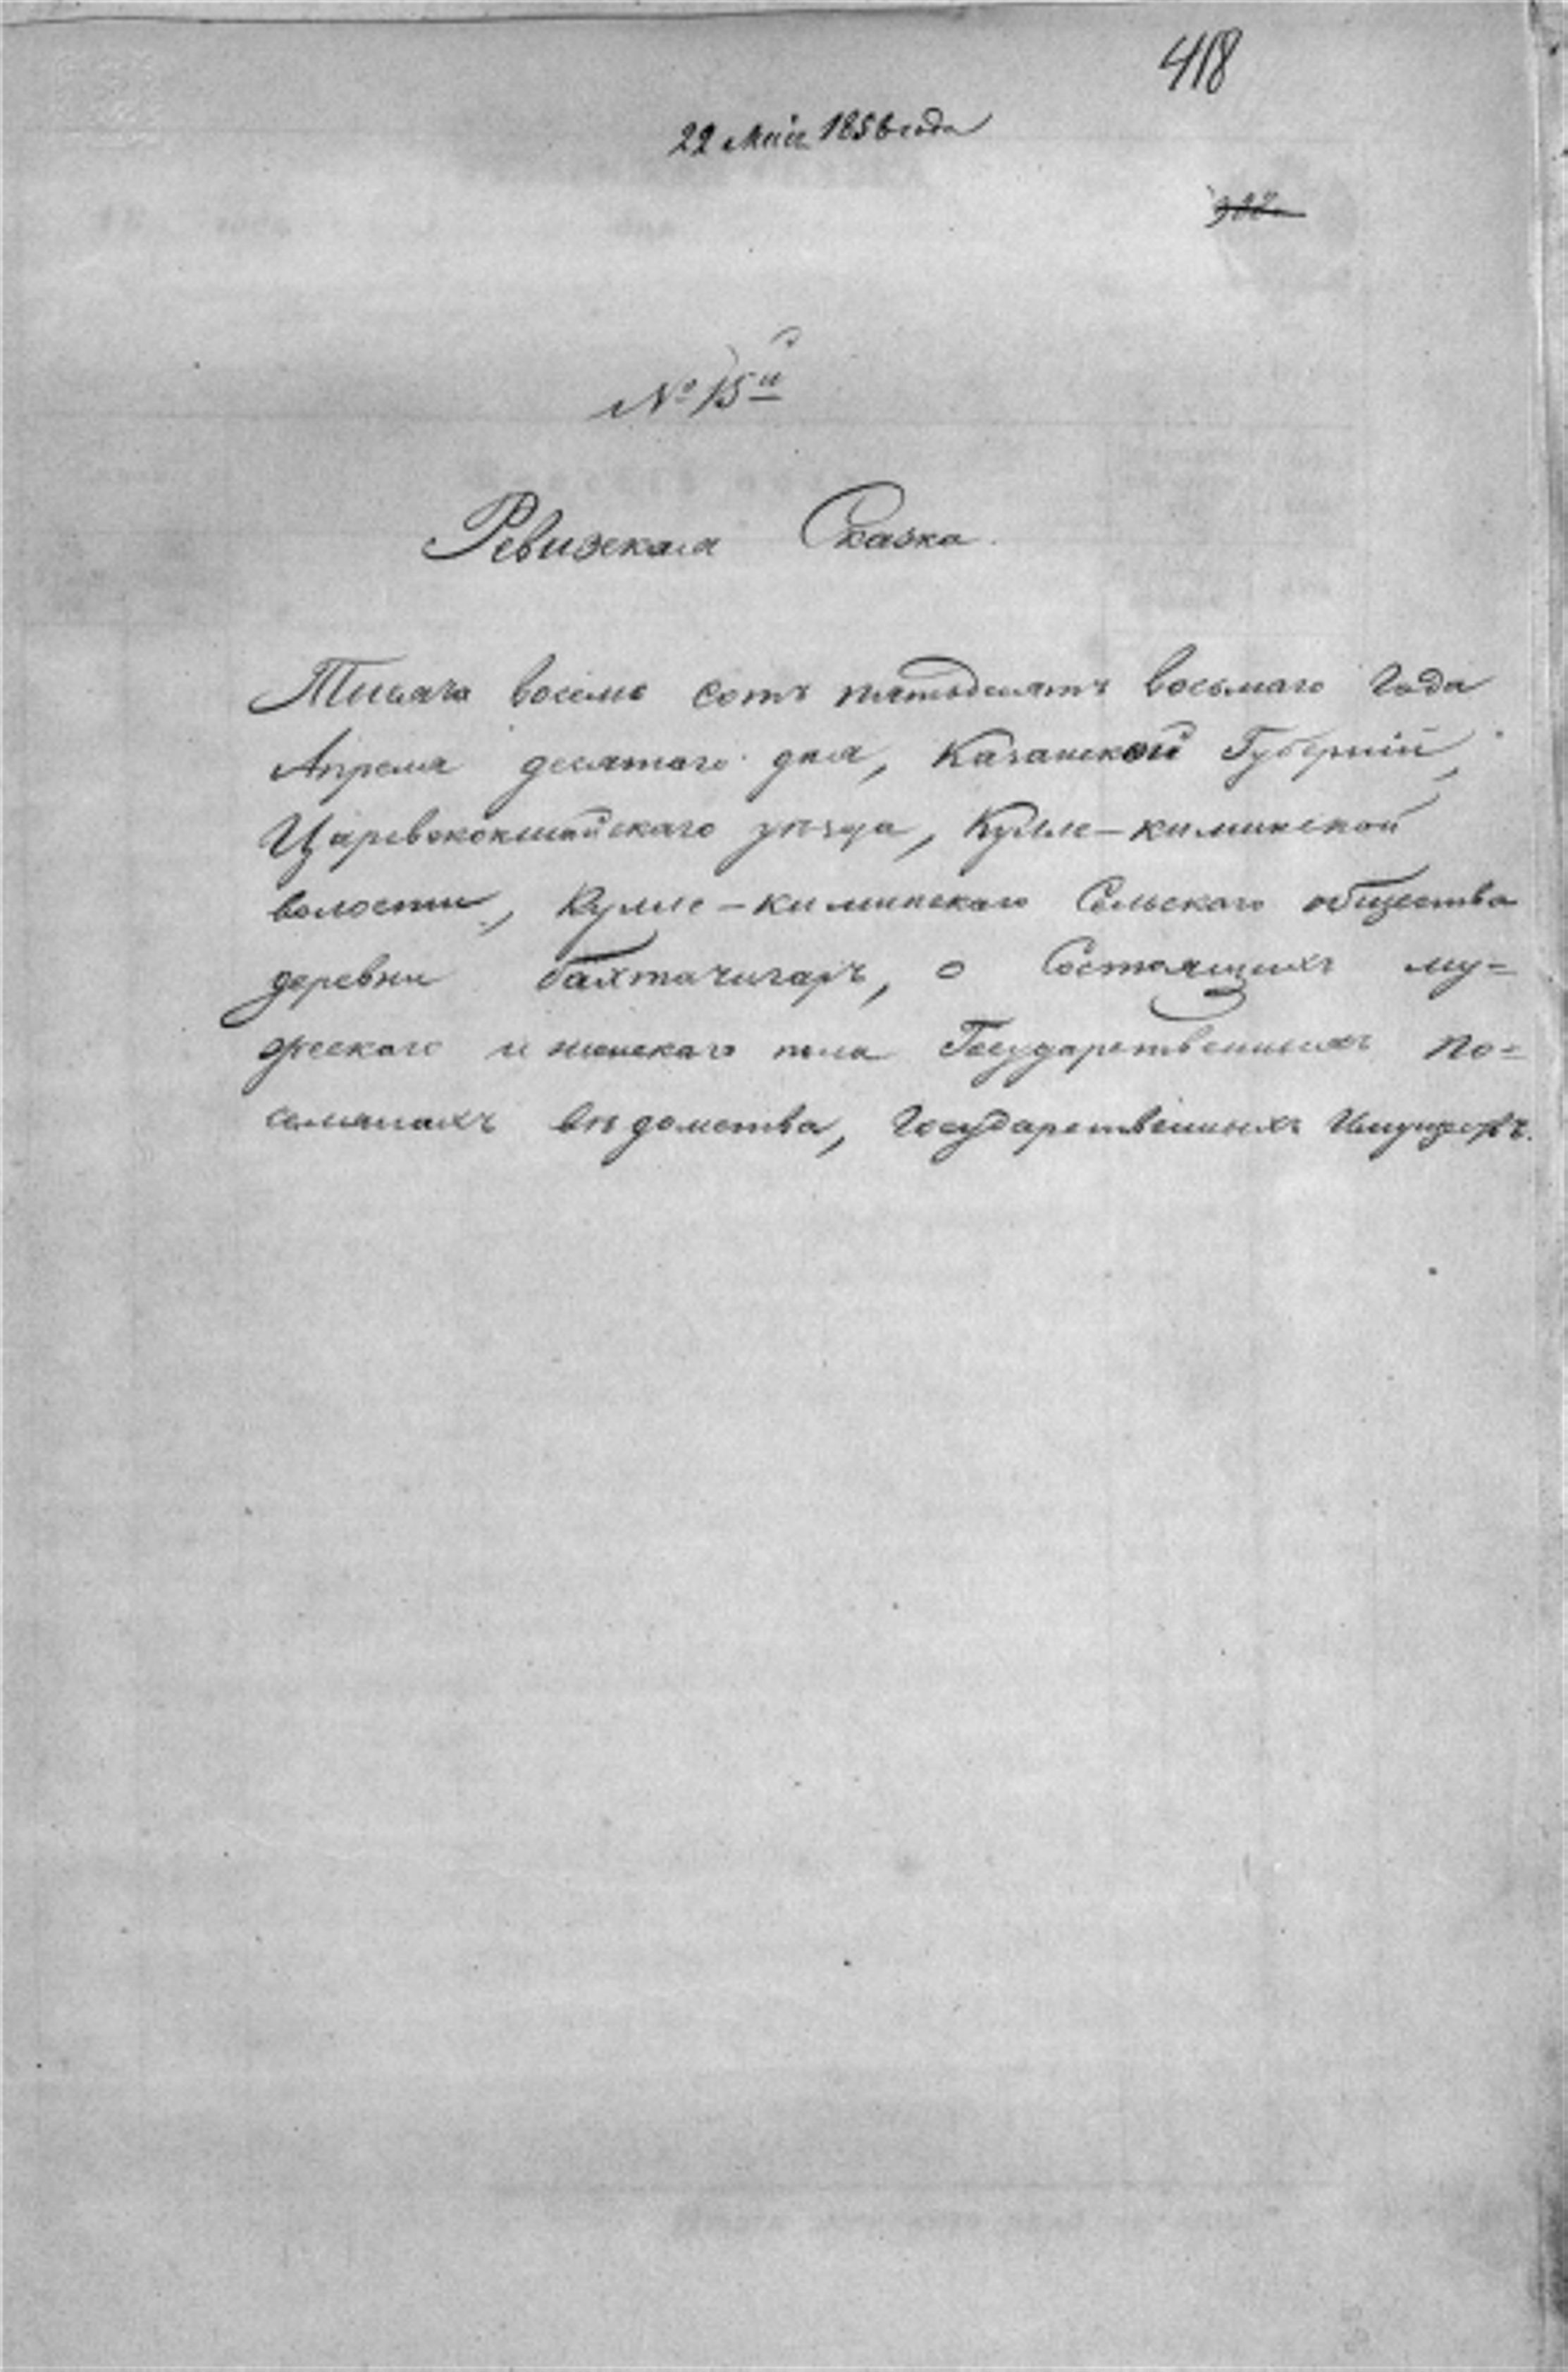 418
22 Мая 1858 года
№ 15й
Ревизская Сказка.
Тысяча восемь сотъ пятьдесятъ восьмаго года
Апреля десятаго дня, Казанской Губерніи,
Царевококшайскаго уѣзда, Кулле-киминской
волости, Кулле-киминскаго Сельскаго общества
деревни бахтачигаръ, о Состоящихъ му=
жескаго и женскаго пола Государственныхъ по=
селянахъ вѣдомства, Государственныхъ Имуществъ.